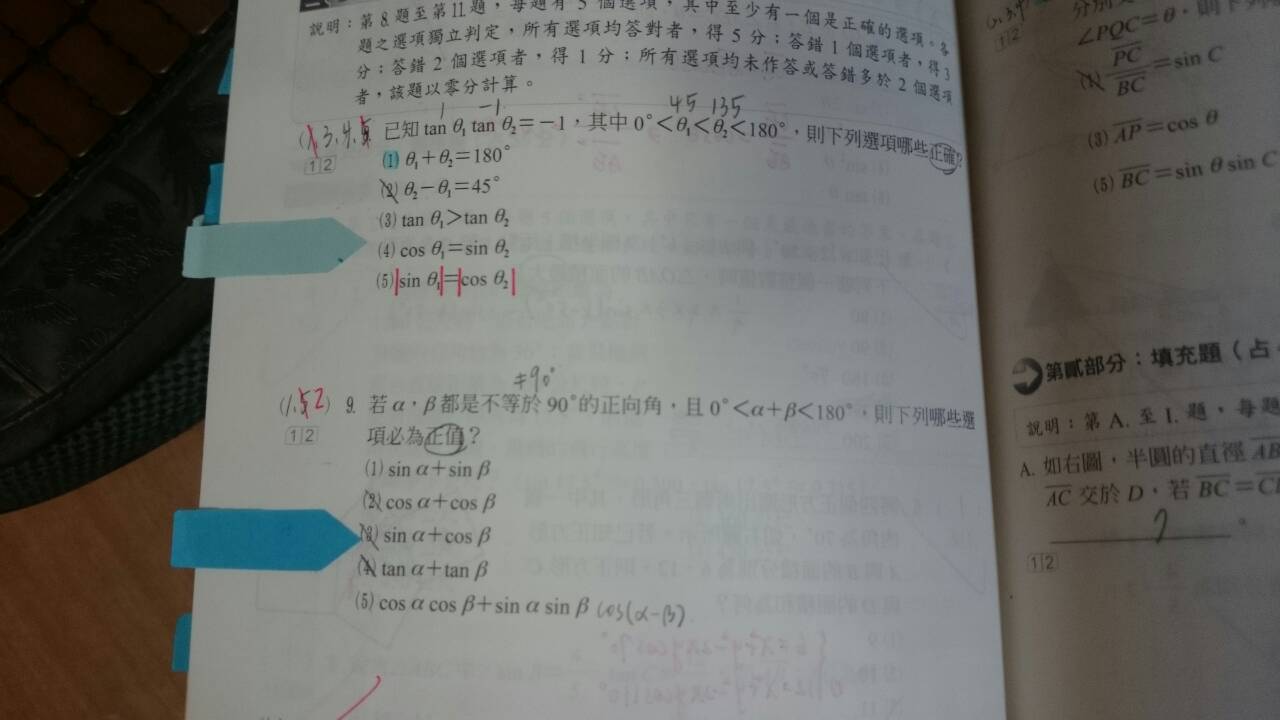 說明：第8題至第11題，每題有5個選項，其中至少有一個是正確的選項。各
題之選項獨立判定，所有選項均答對者，得5分；答錯1個選項者，得3
分；答錯2個選項者，得1分；所有選項均未作答或答錯多於2個選項
者，該題以零分計算。
1 -1 45 135
已知tan θ₁ tan θ₂=-1，其中0°<θ₁<θ₂<180°，則下列選項哪些正確？
12
(1) θ₁+θ₂=180°
(2) θ₂-θ₁=45°
(3) tan θ₁>tan θ₂
(4) cos θ₁=sin θ₂
(5) |sin θ₁|=|cos θ₂|
≠90°
(1.52) 9. 若α，β都是不等於90°的正向角，且0°<α+β<180°，則下列哪些選
12 項必為正值？
(1) sin α+sin β
(2) cos α+cos β
(3) sin α+cos β
(4) tan α+tan β
(5) cos α cos β+sin α sin β cos(α-β)
12
∠PQC=θ，則下列
PC/BC=sin C
(3) AP=cos θ
(5) BC=sin θ sin C
第貳部分：填充題（占
說明：第A.至I.題，每題
A. 如右圖，半圓的直徑AB
AC交於D，若BC=
°
12